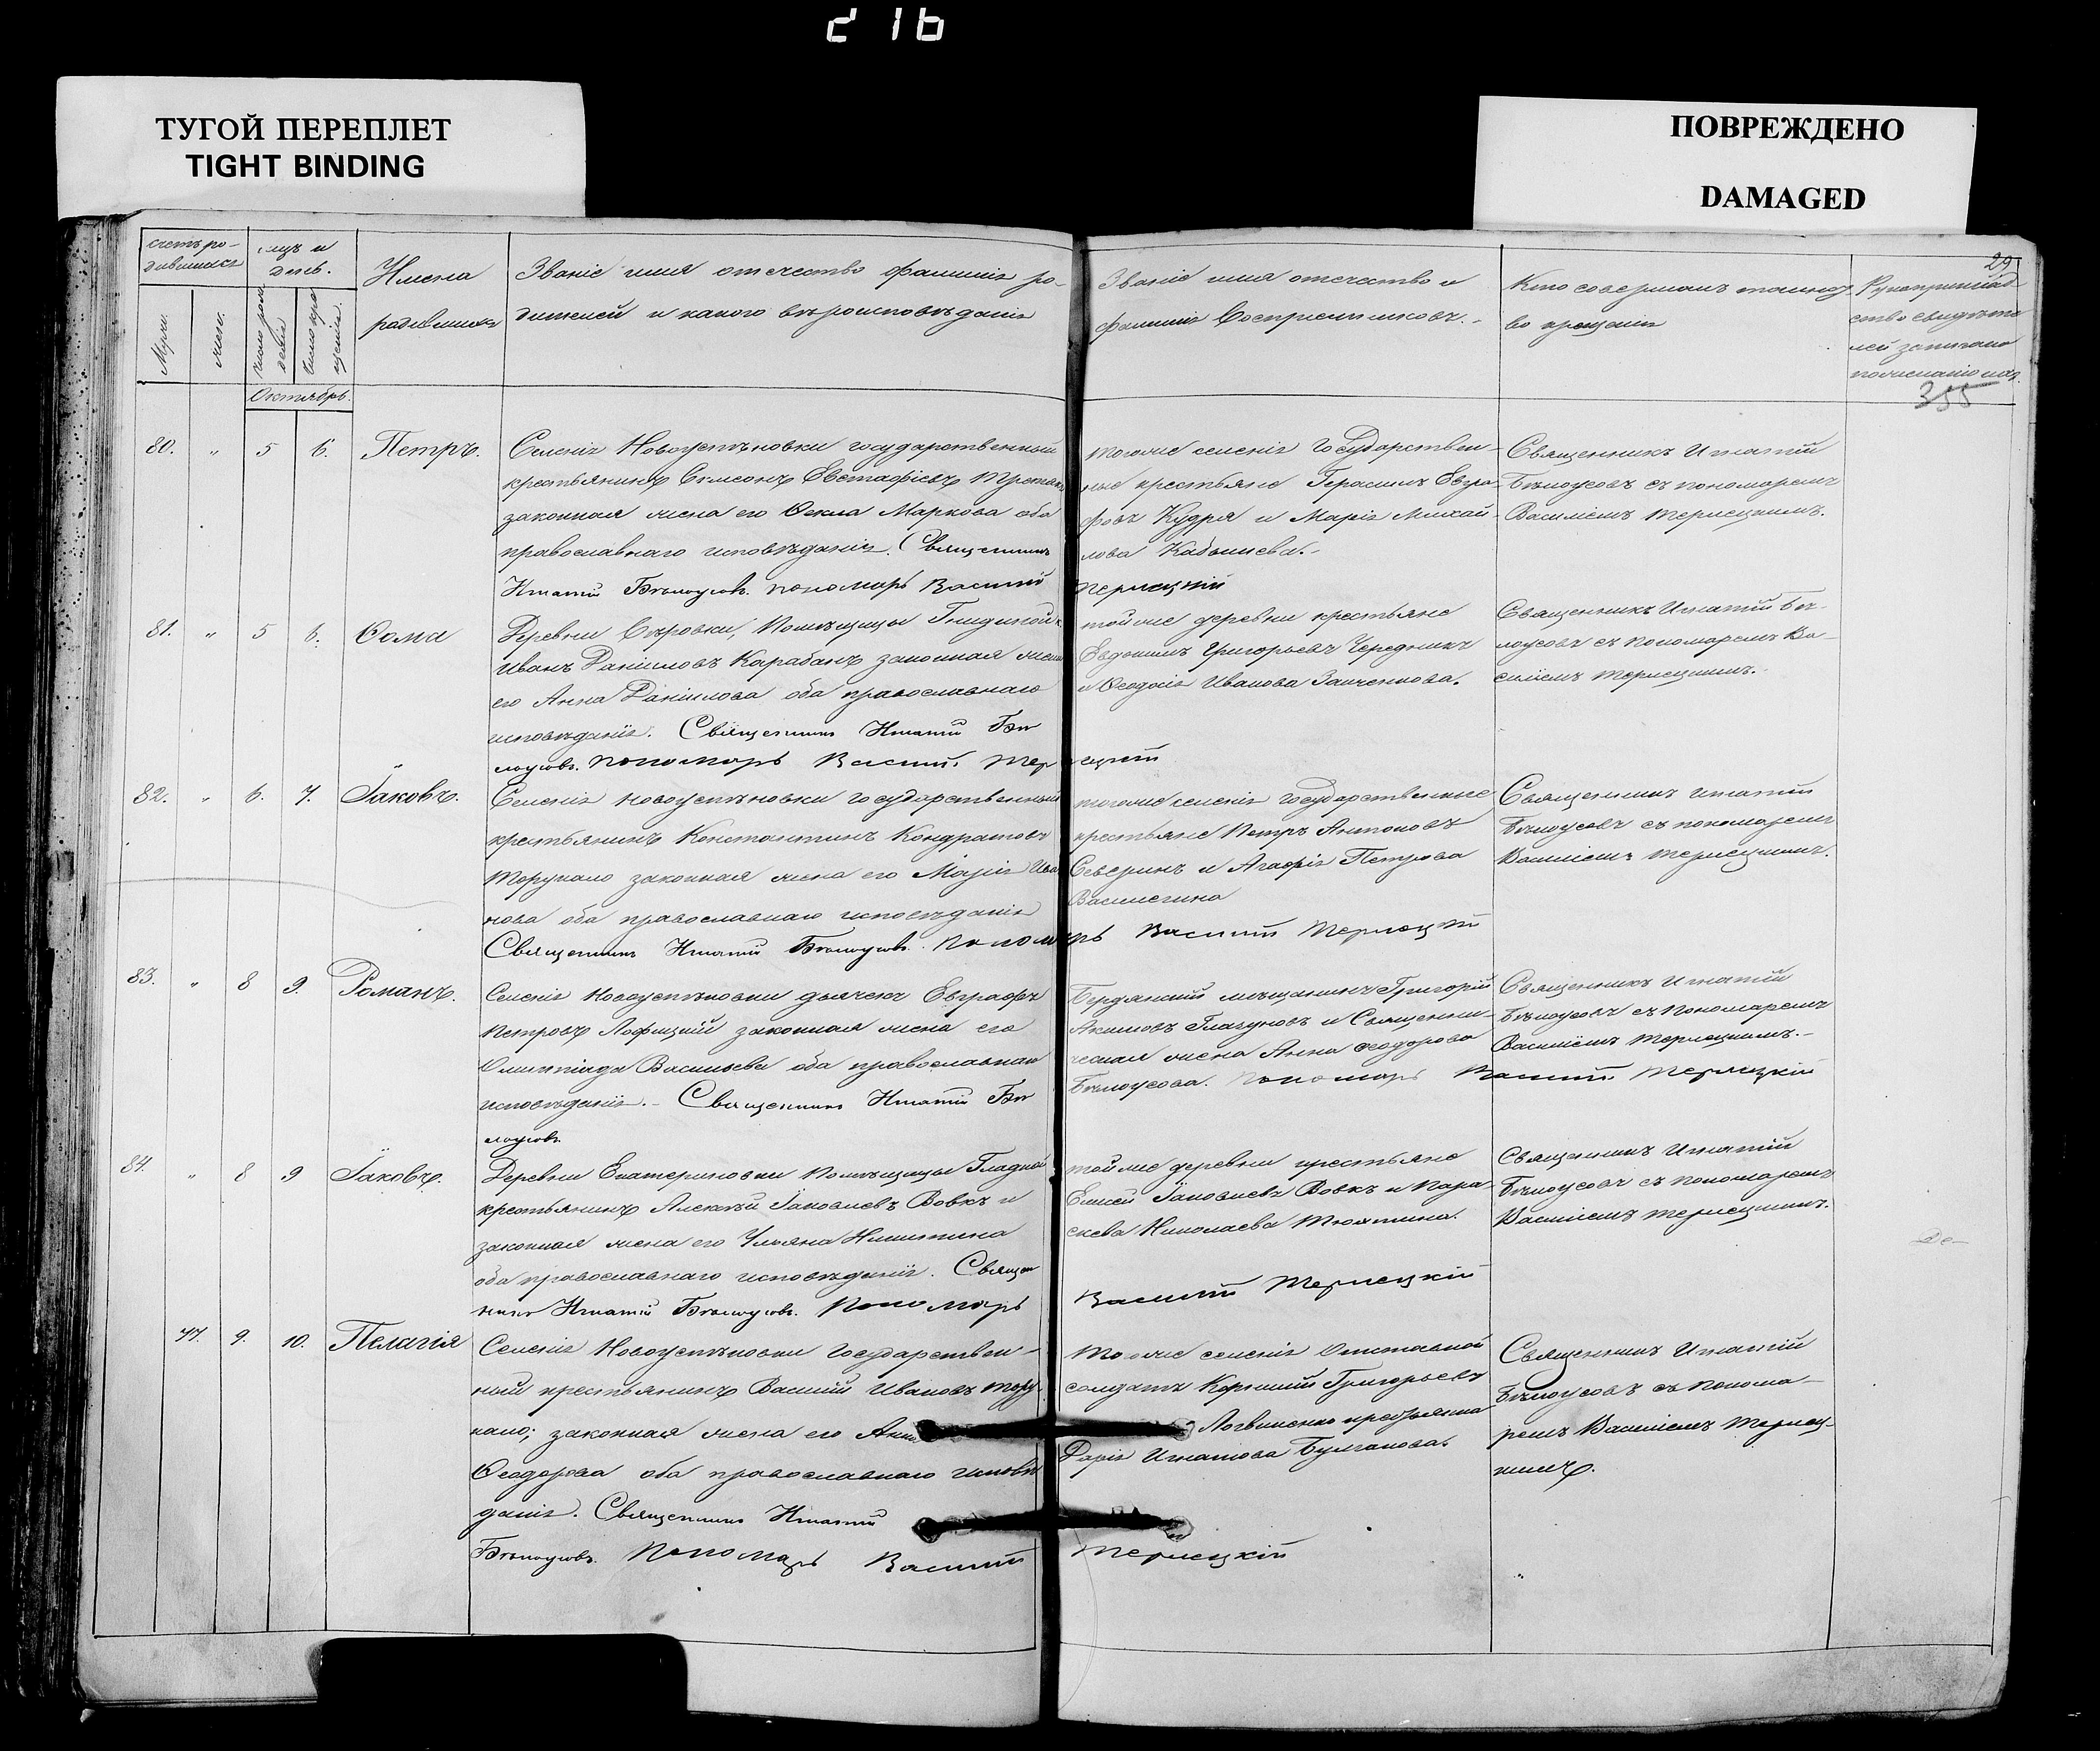 216
ТУГОЙ ПЕРЕПЛЕТ
TIGHT BINDING
ПОВРЕЖДЕНО
DAMAGED
29
счетъ ро-
дившихся
день.
Имена
родившихся
Званіе имя отечество фамилія ро-
дителей и какого вѣроисповѣданія
Званіе имя отечество и
фамилія Воспріемниковъ.
Кто совершалъ таинст-
во крещенія
Рукоприклад
ство свидѣте
лей записано
по желанію
355
Мужс.
женс.
Октябрь.
80. " 5 6. Петръ.
Селенія Новоуспѣновки государственный
крестьянинъ Симеонъ Евстафіевъ
законная жена его Ѳекла Маркова оба
православнаго исповѣданія. Священникъ
Игнатій Бѣлоусовъ. пономарь Василій
тогоже селенія Государствен-
ные крестьяне Герасимъ Евгра-
фовъ Кудря и Марія Михай-
лова
Терлецкій
Священникъ Игнатій
Бѣлоусовъ съ пономаремъ
Василіемъ Терлецкимъ.
81. " 5 6. Ѳома
Деревни Помѣщицы
Иванъ Даниловъ Карабанъ законная жена
его Анна Данилова оба православнаго
исповѣданія. Священникъ Игнатій Бѣ
лоусовъ. пономарь Василій Тер
тойже деревни крестьяне
Евдокимъ Григорьевъ Чередникъ
и Ѳеодосія Иванова Заиченкова.
лецкій
Священникъ Игнатій Бѣ-
лоусовъ съ пономаремъ Ва-
силіемъ Терлецкимъ.
82. " 6. 7. Іаковъ.
Селенія Новоуспѣновки государственный
крестьянинъ Константинъ Кондратовъ
законная жена его Марія Ива
нова оба православнаго исповѣданія
Священникъ Игнатій Бѣлоусовъ. Пономарь Василій Терлецкій
тогоже селенія государственные
крестьяне Петръ Антоновъ
Северинъ и Агафія Петрова
Священникъ Игнатій
Бѣлоусовъ съ пономаремъ
Василіемъ Терлецкимъ.
83. " 8 9. Романъ.
Селенія Новоуспѣновки дьячекъ Евграфъ
Петровъ Лофицкій законная жена его
Олимпіада Васильева оба православнаго
исповѣданія. Священникъ Игнатій Бѣ
лоусовъ.
Бердянскій мѣщанинъ Григорій
Акимовъ Глазуновъ и Священни-
ческая жена Анна Ѳеодорова
Бѣлоусова. Пономарь Василій Терлецкій
Священникъ Игнатій
Бѣлоусовъ съ пономаремъ
Василіемъ Терлецкимъ.
84. " 8 9 Іаковъ.
Деревни Екатериновки Помѣщицы Гладкой
крестьянинъ Алексѣй Іаковлевъ Вовкъ и
законная жена его Ульяна Никитина
оба православнаго исповѣданія. Священ
никъ Игнатій Бѣлоусовъ. Пономарь
тойже деревни крестьяне
Елисей Іаковлевъ Вовкъ и Пара-
скева Николаева
Василій Терлецкій
Священникъ Игнатій
Бѣлоусовъ съ пономаремъ
Василіемъ Терлецкимъ.
77. 9. 10. Пелагія
Селенія Новоуспѣновки Государствен-
ный крестьянинъ Василій Ивановъ
законная жена его
Ѳеодорова оба православнаго исповѣ
данія. Священникъ Игнатій
Бѣлоусовъ. Пономарь Василій
селенія Отставной
солдатъ Корнилій Григорьевъ
Логвиненко крестьянка
Дарія Игнатова Булгакова.
Терлецкій
Священникъ Игнатій
Бѣлоусовъ съ понома-
ремъ Василіемъ Терлец-
кимъ.